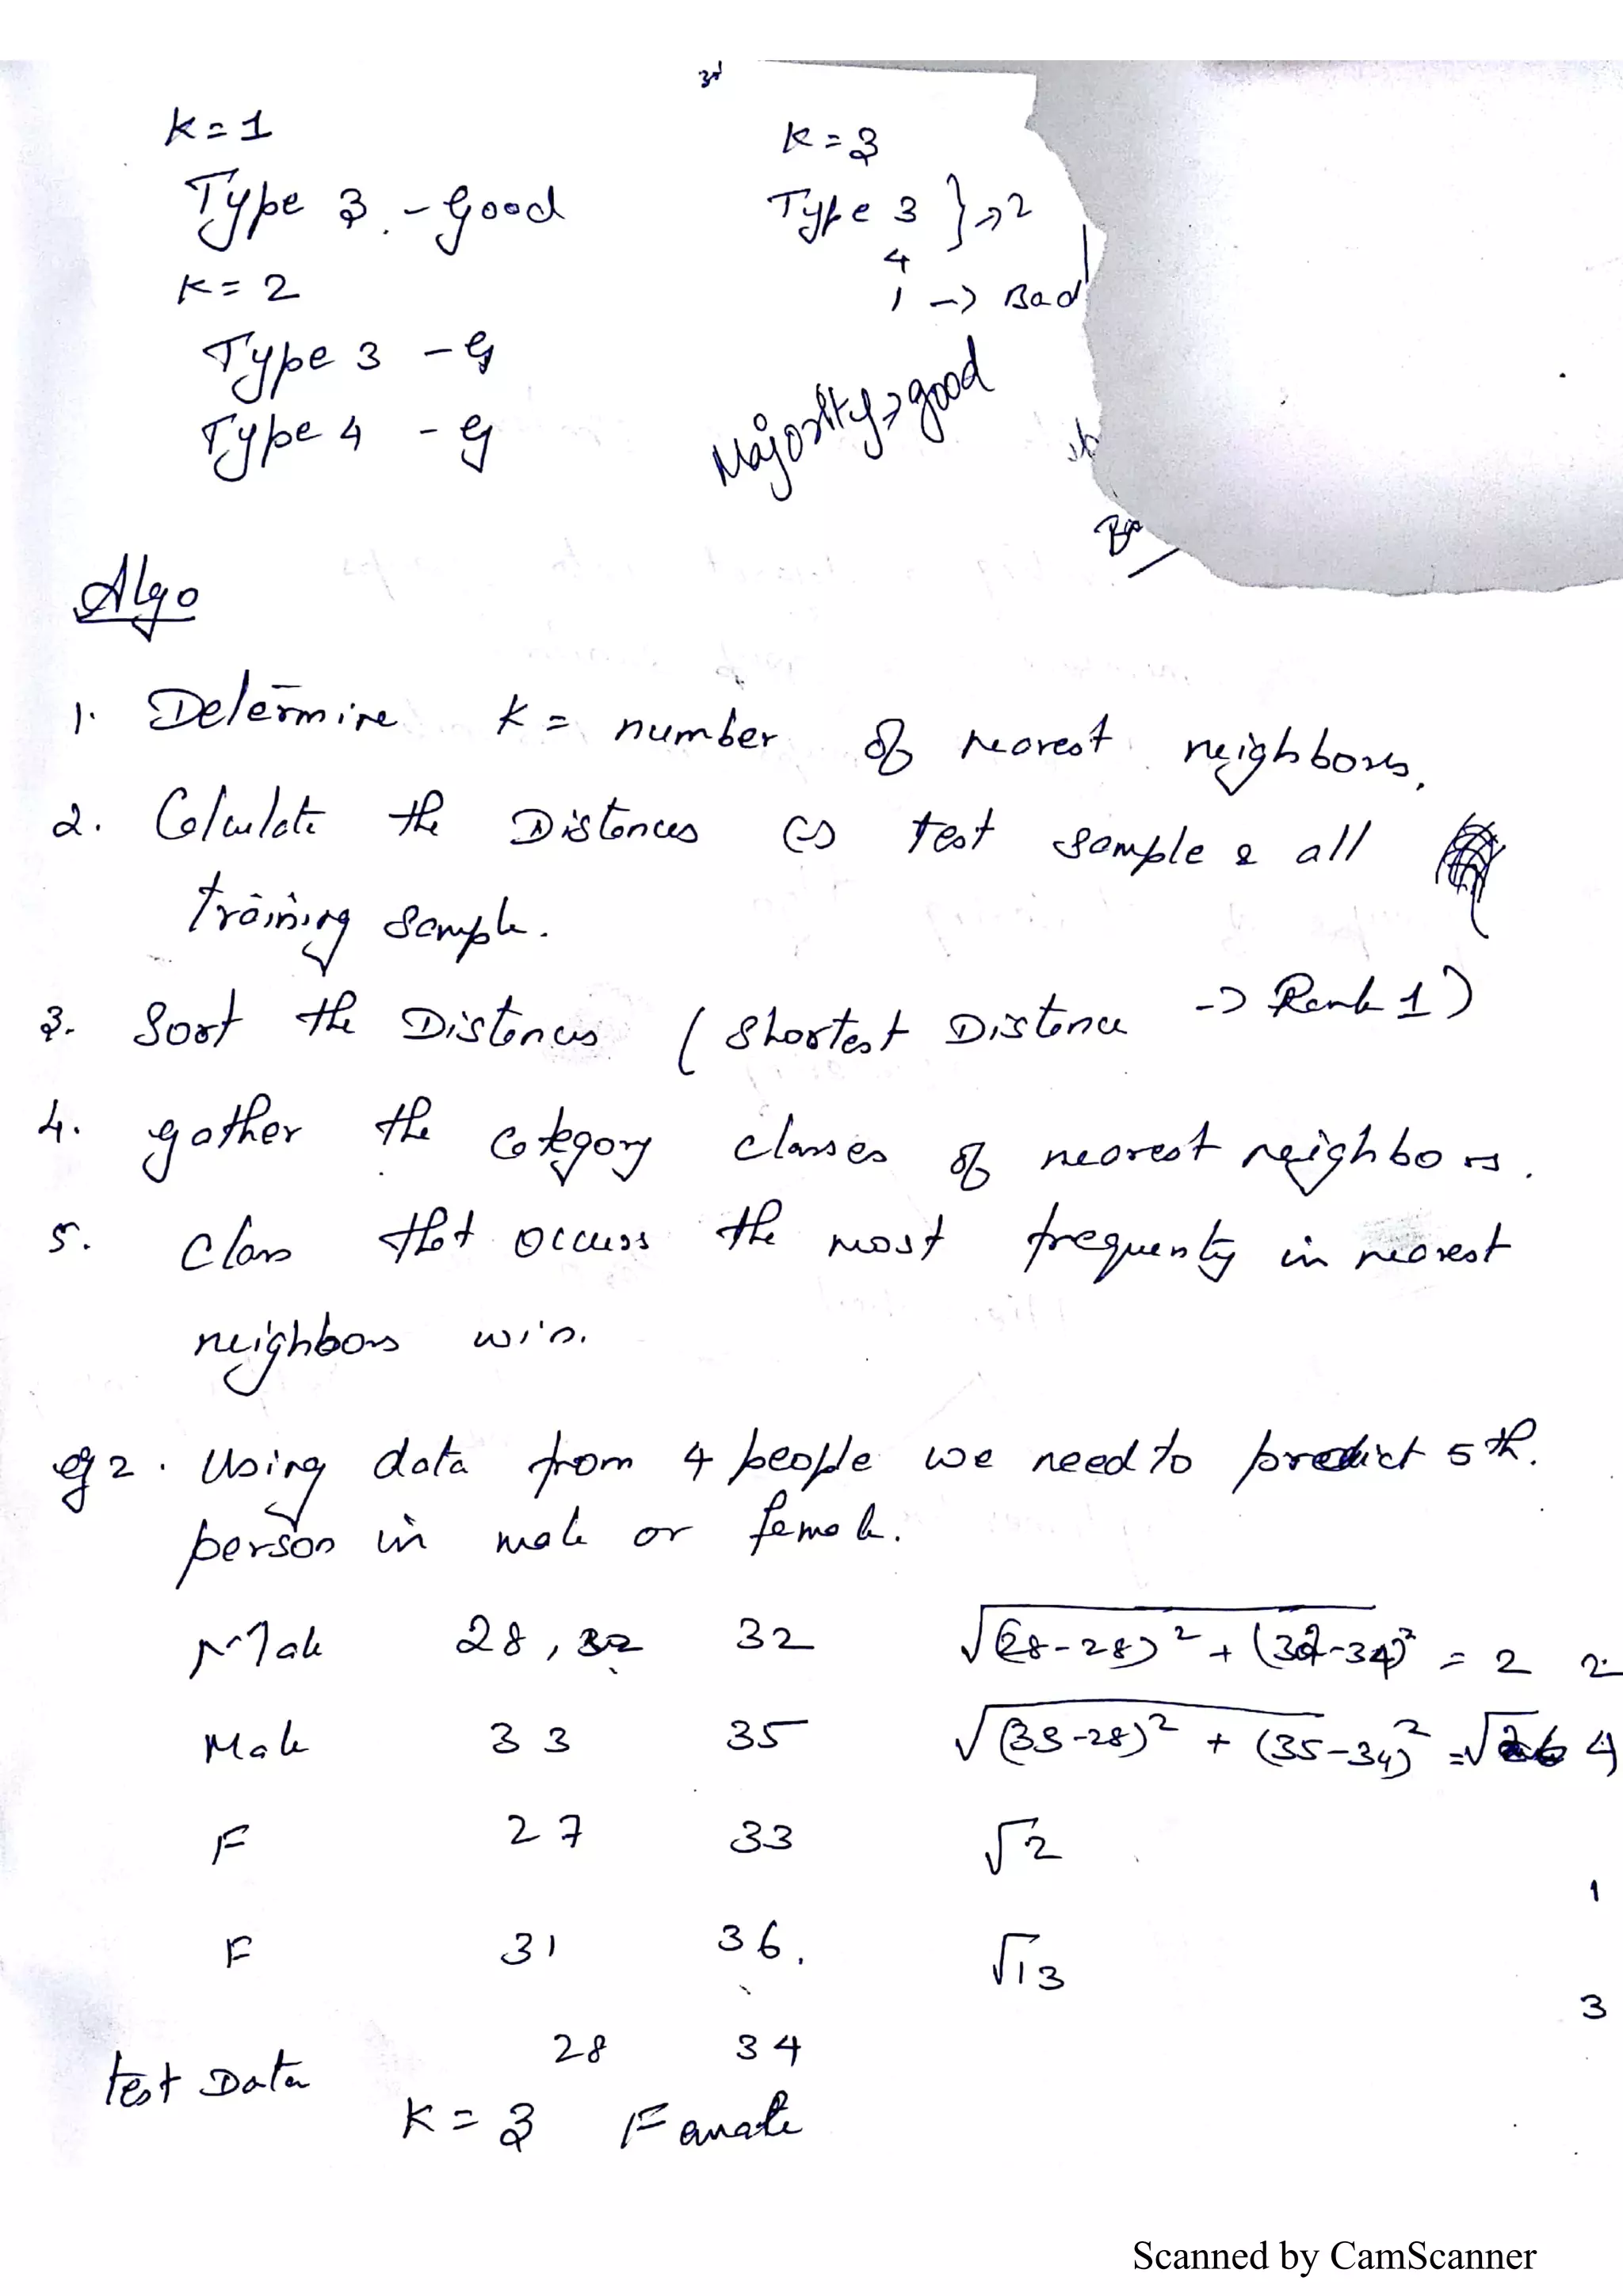 3rd
K=1
Type 3 - Good
K= 2
Type 3 - G
Type 4 - G
K=3
Type 3 } → 2
4
1 → Bad
Majority → good
Algo
1. Determine K = number of nearest neighbors.
2. Calculate the Distances test sample & all
training sample.
3. Sort the Distances (Shortest Distance → Rank 1)
4. gather the category classes of nearest neighbors.
5. Class that occurs the most frequenty in nearest
neighbors win.
eg 2. Using data from 4 people we need to predict 5th.
person in male or female.
Male 28, 32 √(28-28)² + (32-34)² = 2 2
Male 33 35 √(33-28)² + (35-34)² = √26 4
F 27 33 √2 1
F 31 36. √13 3
Test Data 28 34
K = 3 Female
Scanned by CamScanner